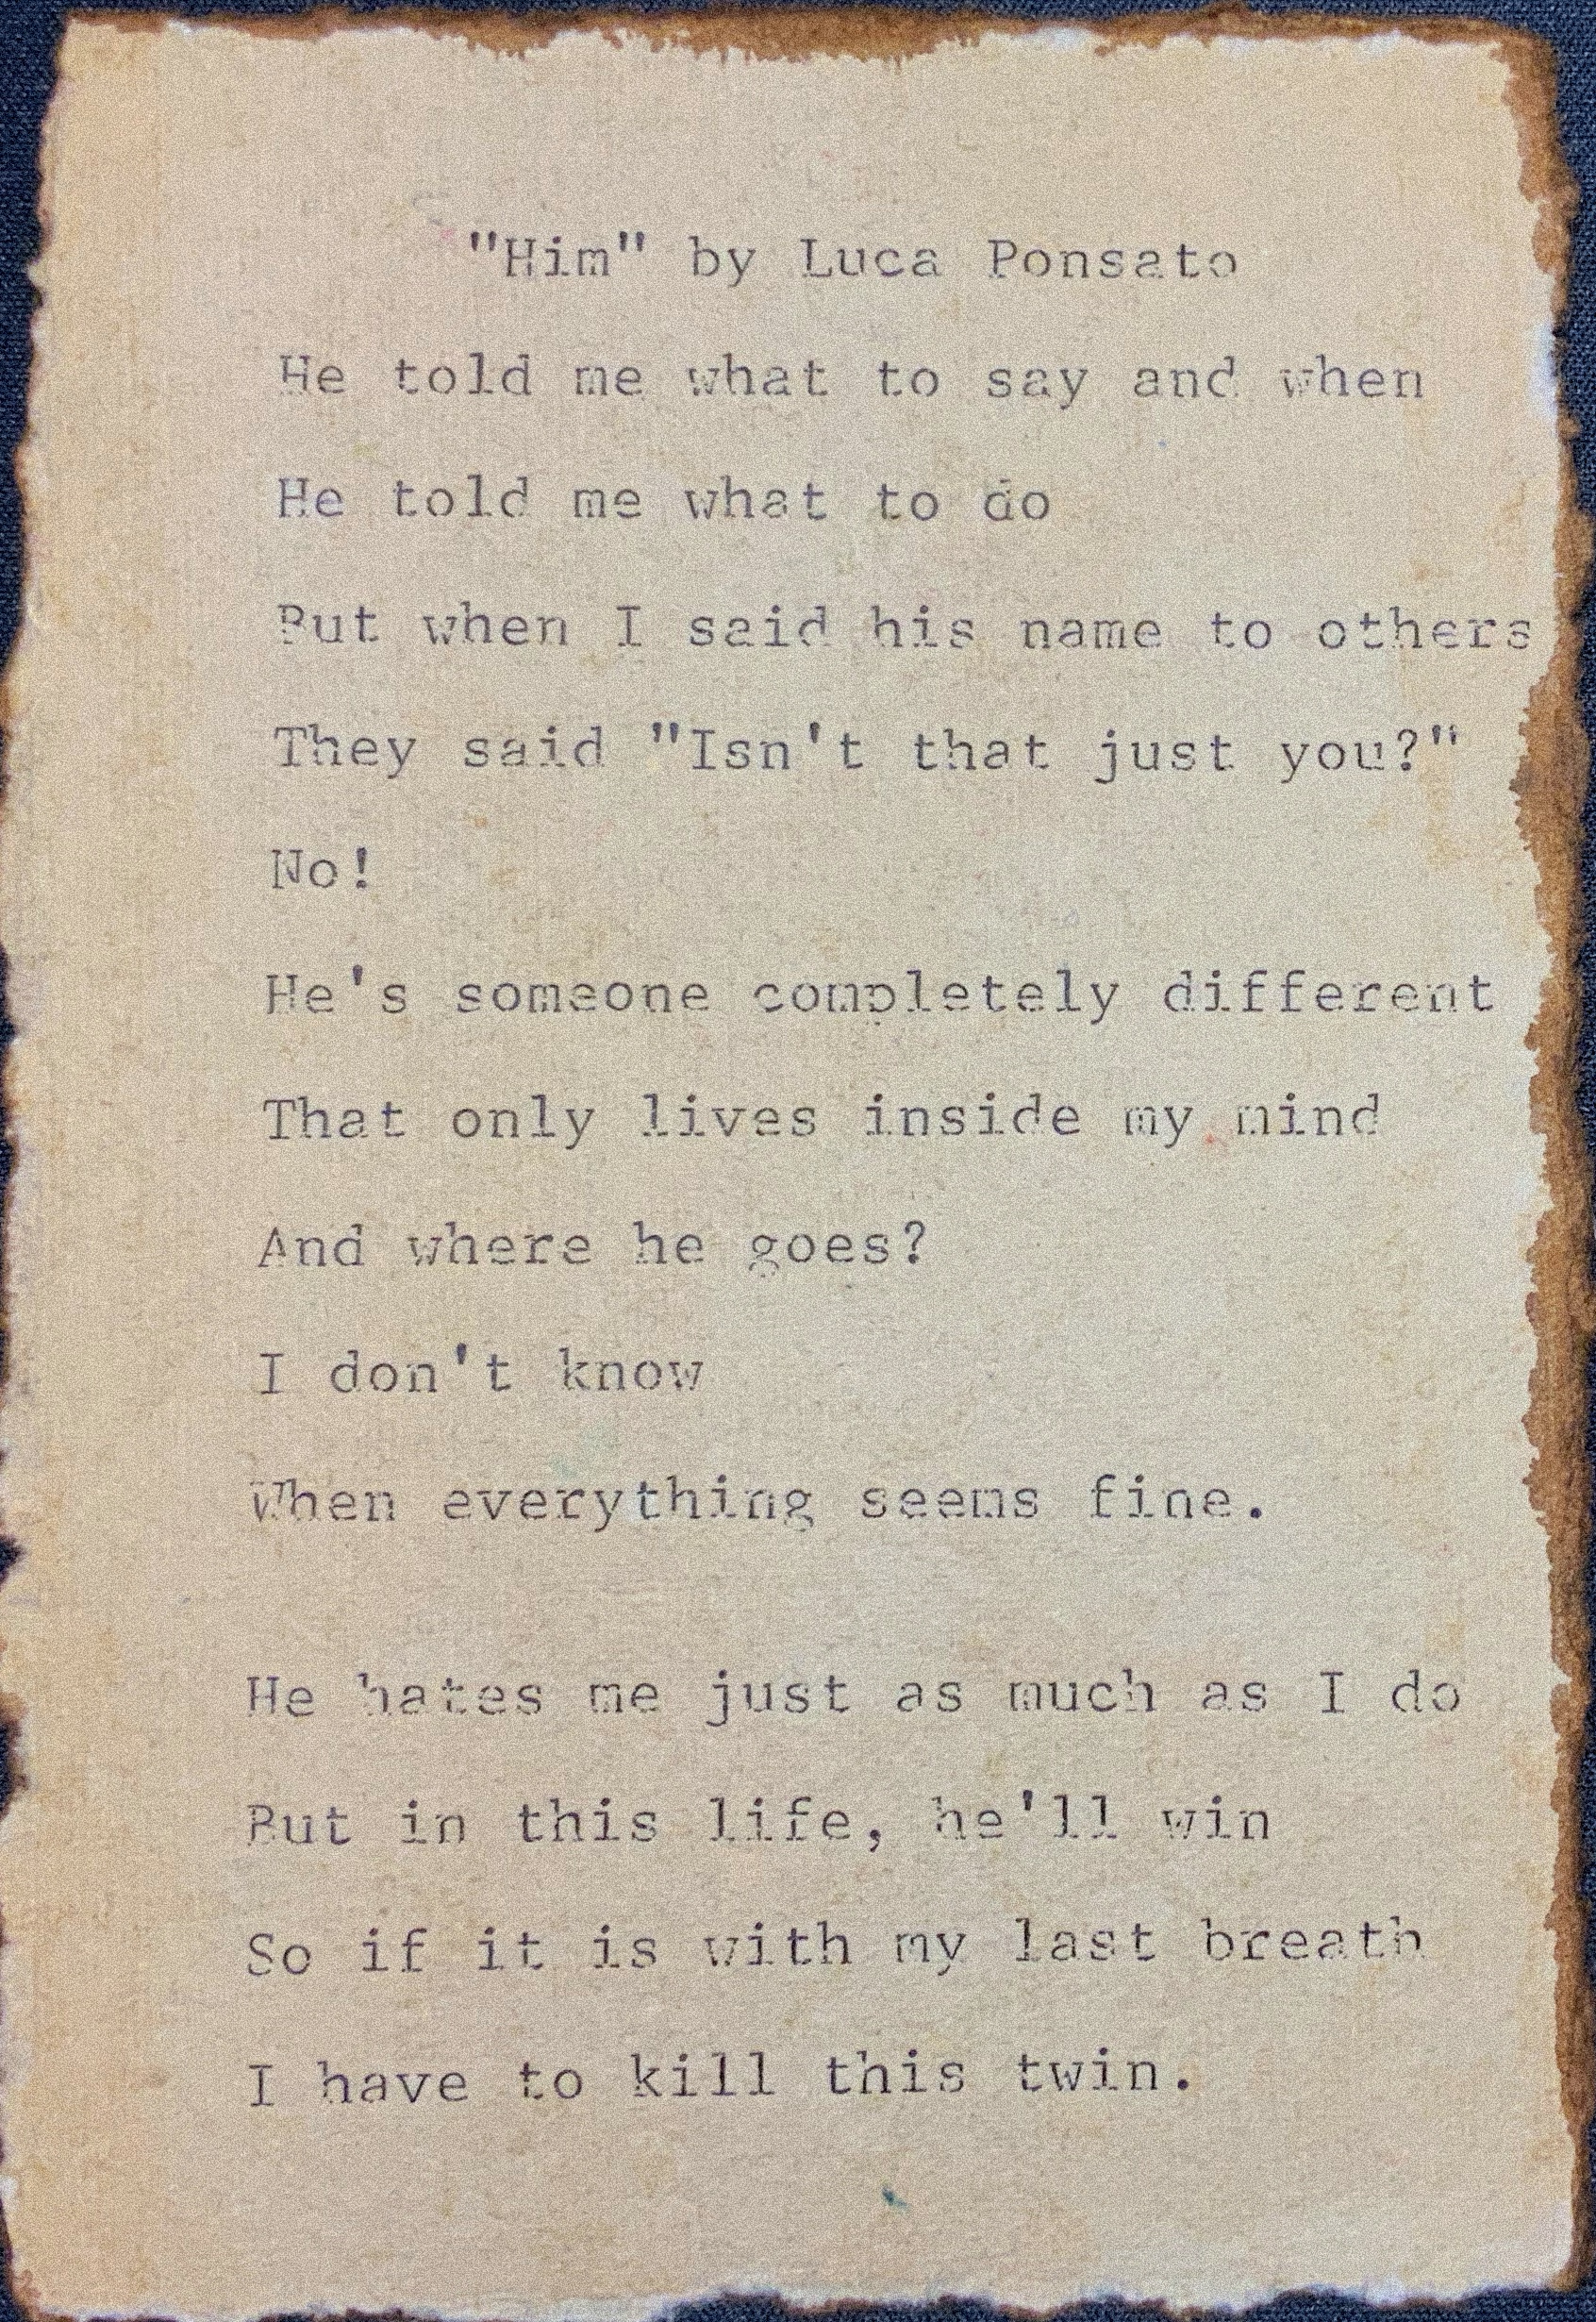 "Him" by Luca Ponsato
He told me what to say and when
He told me what to do
But when I said his name to others
They said "Isn't that just you?"
No!
He's someone completely different
That only lives inside my mind
And where he goes?
I don't know
When everything seems fine.
He hates me just as much as I do
But in this life, he'll win
So if it is with my last breath
I have to kill this twin.